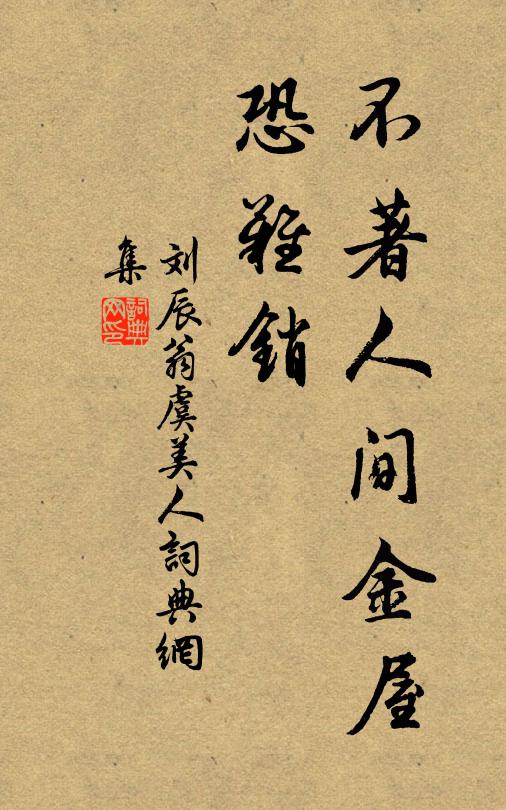 不著人间金屋
恐難銷
刘辰翁虞美人詞典網
集
詞典
网印